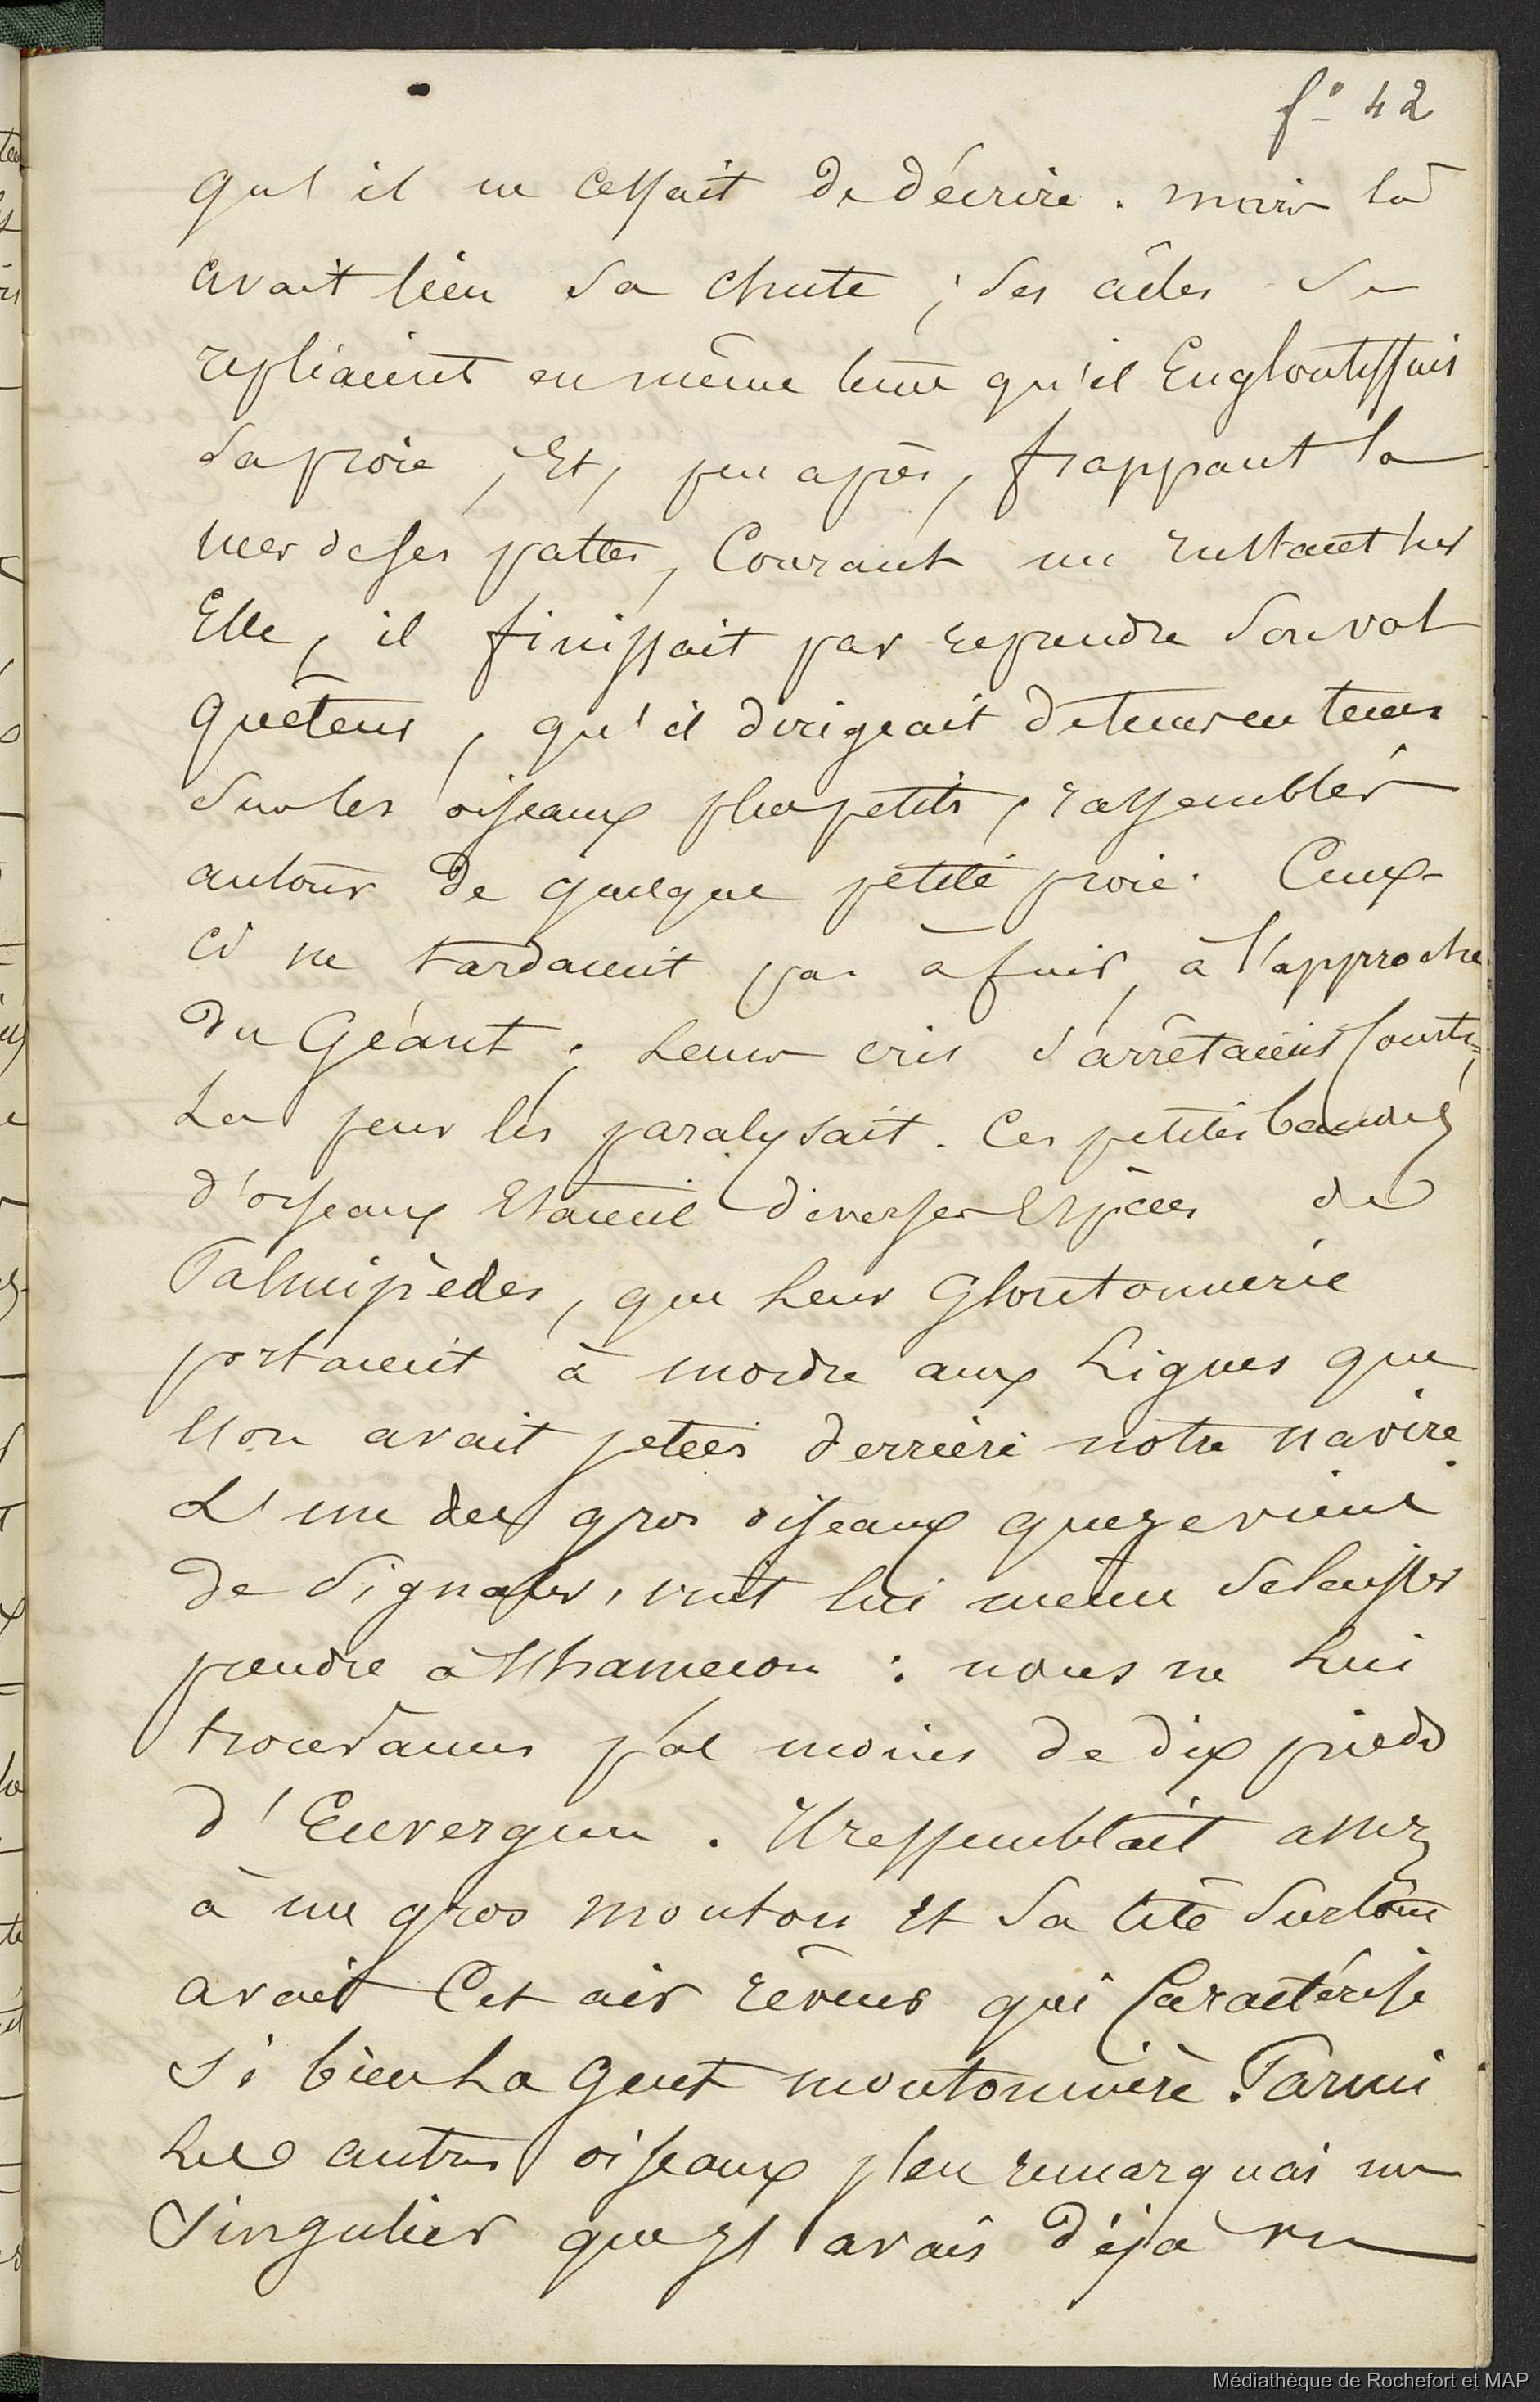 f° 42
qu'il ne cessait de décrire. mais là
avait lieu sa chute ; ses ailes se
repliaient en même tems qu'il Engloutissait
sa proie ; Et, peu après, frappant la
mer de ses pattes, Courant un instant sur
Elle, il finissait par reprendre son vol
quêteur, qu'il dirigeait de tems en tems
sur les oiseaux plus petits, rassemblés
autour de quelque petite proie. Ceux-
ci ne tardaient pas à fuir, à l'approche
du Géant ; Leurs cris s'arrêtaient
La peur les paralysait. Ces petites bandes
d'oiseaux Etaient diverses Espèces de
Palmipèdes, que Leur Gloutonnerie
portaient à mordre aux Lignes que
l'on avait jetées derrière notre navire.
L'un des gros oiseaux que je viens
de signaler, vint lui même se laisser
prendre à l'hameçon : nous ne Lui
trouvâmes pas moins de dix pieds
d'Envergure. Il ressemblait assez
à un gros mouton Et sa tête surtout
avait Cet air rêveur qui Caractérise
si bien La Gent moutonnière. Parmi
Les autres oiseaux j'en remarquai un
singulier que j'avais déjà vu
Médiathèque de Rochefort et MAP